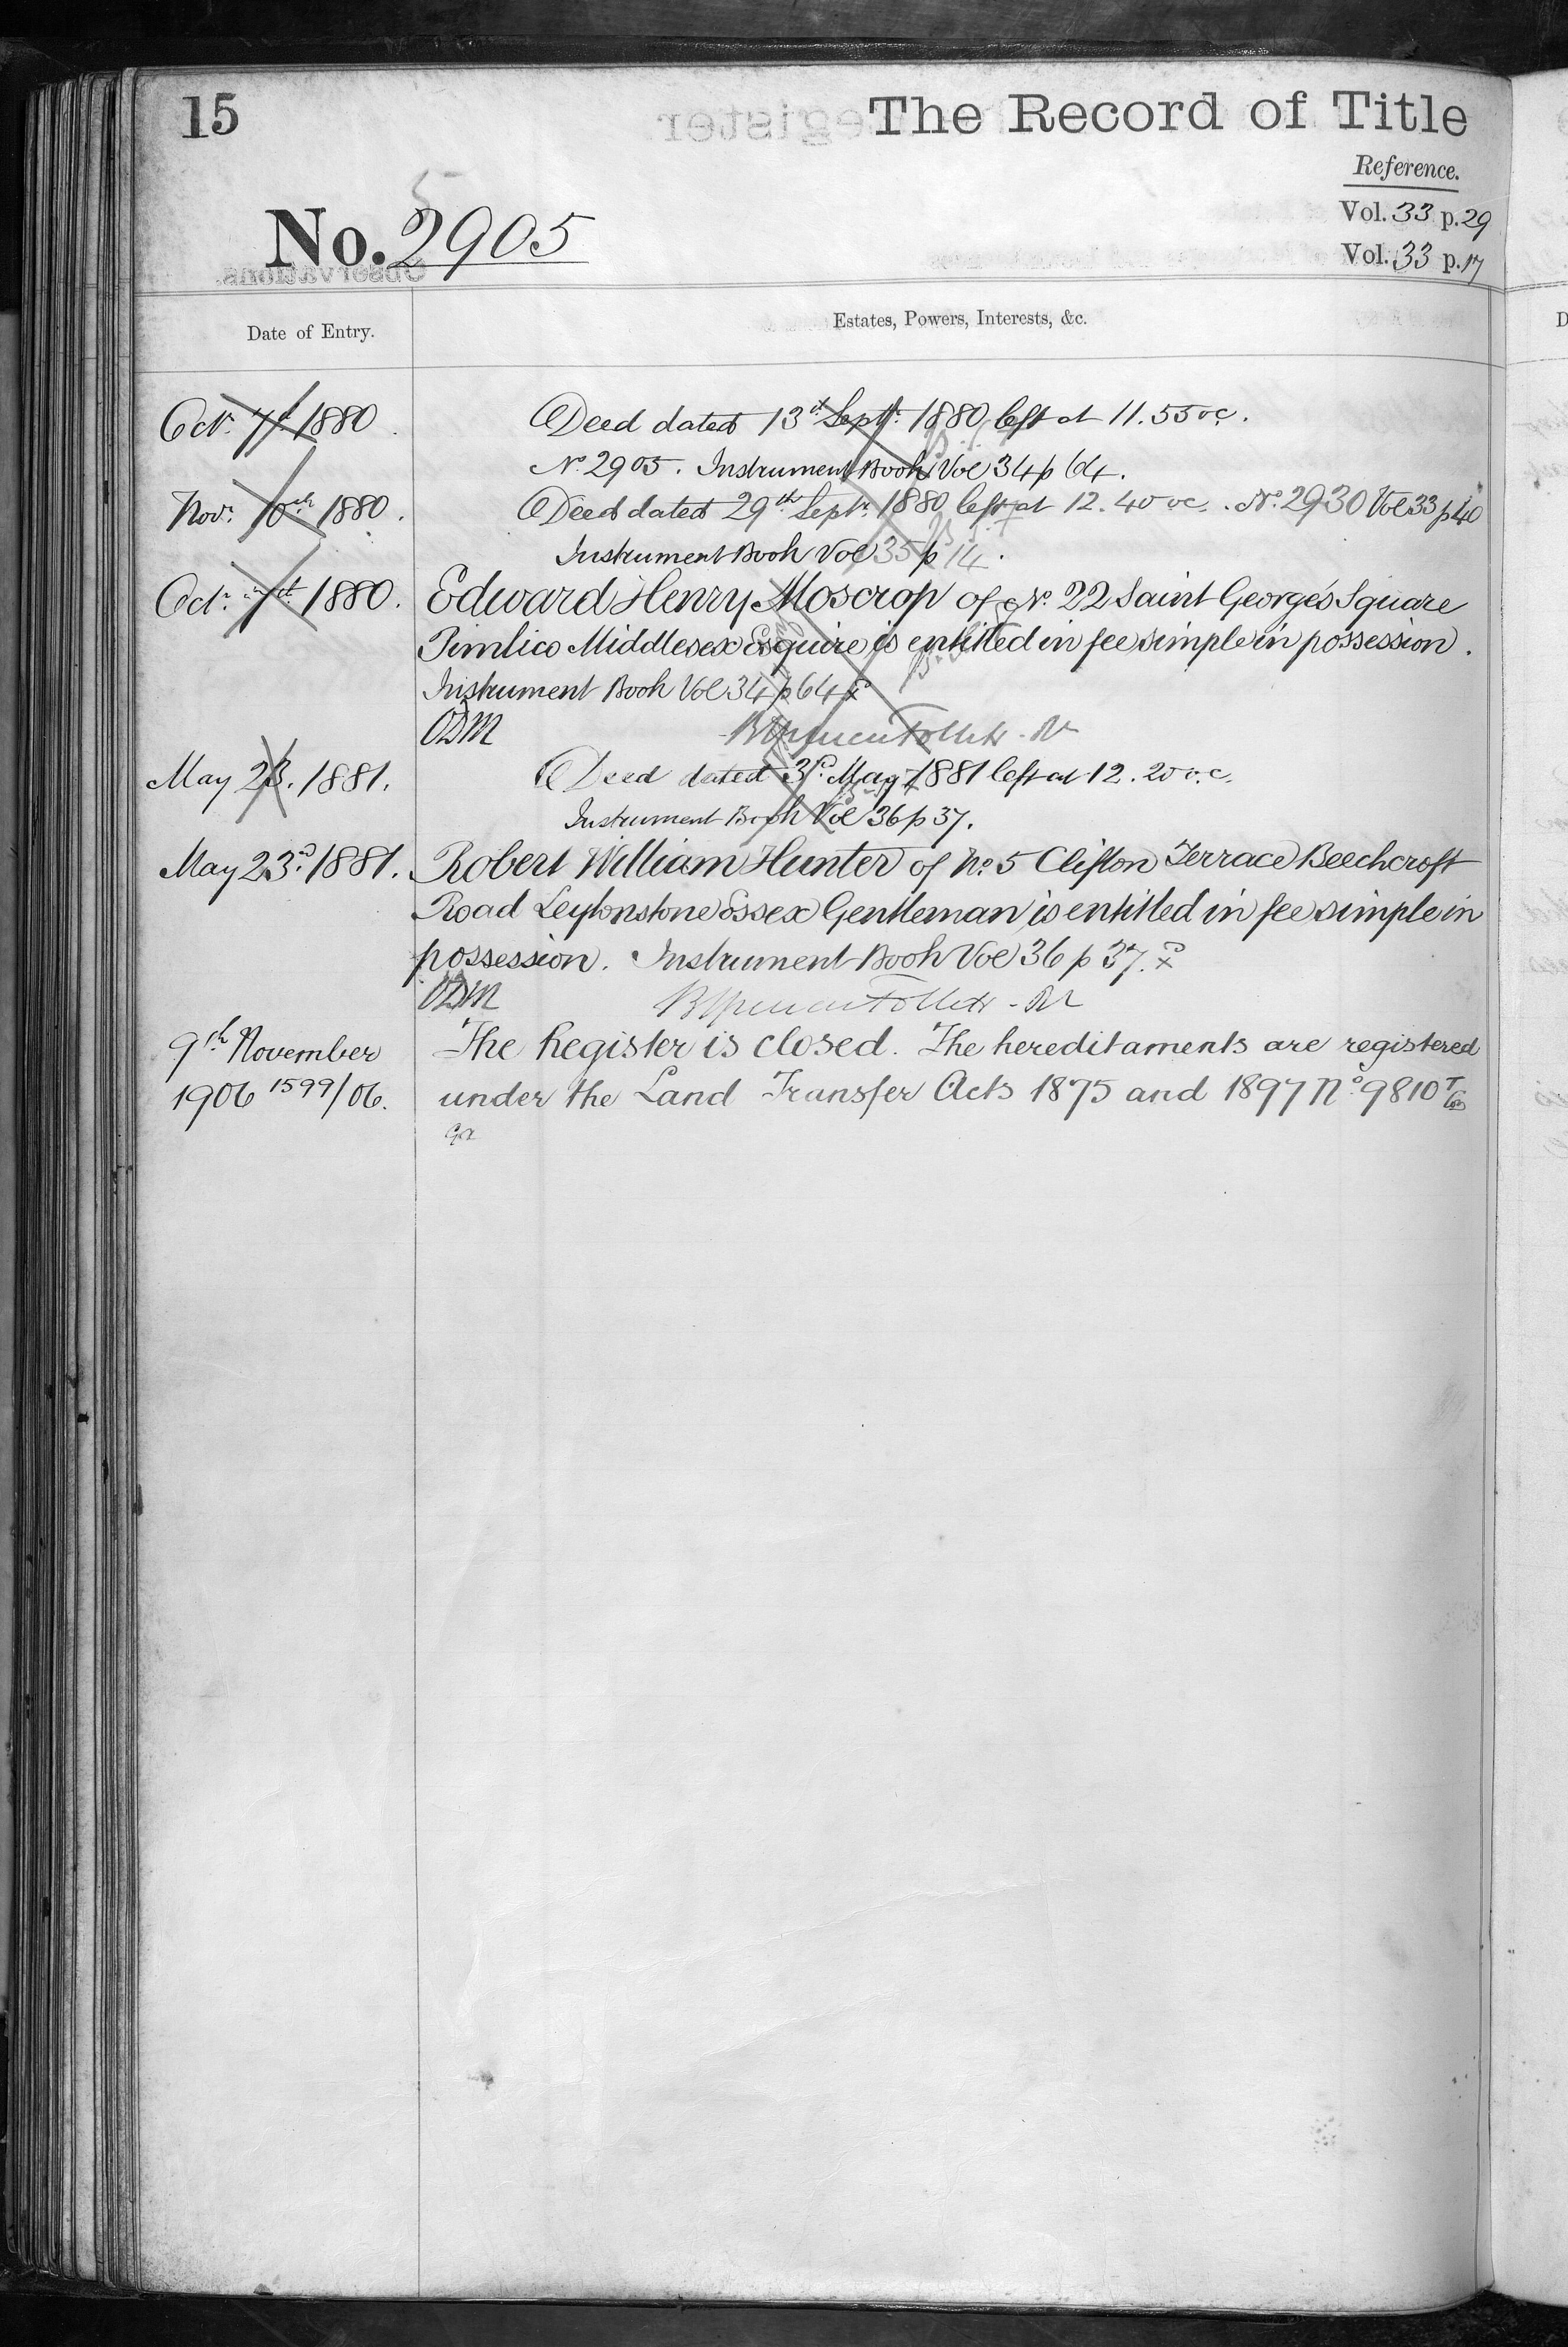 15
The Record of Title
Reference.
Vol. 33 p. 29
No. 2905
Vol. 33 p. 17
Date of Entry.
Estates, Powers, Interests, &c.
Octr. 7th 1880
Deed dated 13th Septr. 1880 left at 11.55 oc.
No. 2905. Instrument Book Vol 34 p 64.
Novr. 10th 1880.
Deed dated 29th Septr. 1880 left at 12.40 oc. No. 2930 Vol 33 p 40
Instrument Book Vol 35 p 14.
Octr. 7th 1880.
Edward Henry Moscrop of No. 22 Saint George's Square
Pimlico Middlesex Esquire is entitled in fee simple in possession.
Instrument Book Vol 34 p 64
ODM
May 23. 1881.
Deed dated 3rd May 1881 left at 12.20 o.c.
Instrument Book Vol 36 p 37.
May 23rd. 1881.
Robert William Hunter of No. 5 Clifton Terrace Beechcroft
Road Leytonstone Essex Gentleman is entitled in fee simple in
possession. Instrument Book Vol 36 p 37.
ODM
9th November
The Register is closed. The hereditaments are registered
1906 1599/06.
under the Land Transfer Acts 1875 and 1897 No. 9810